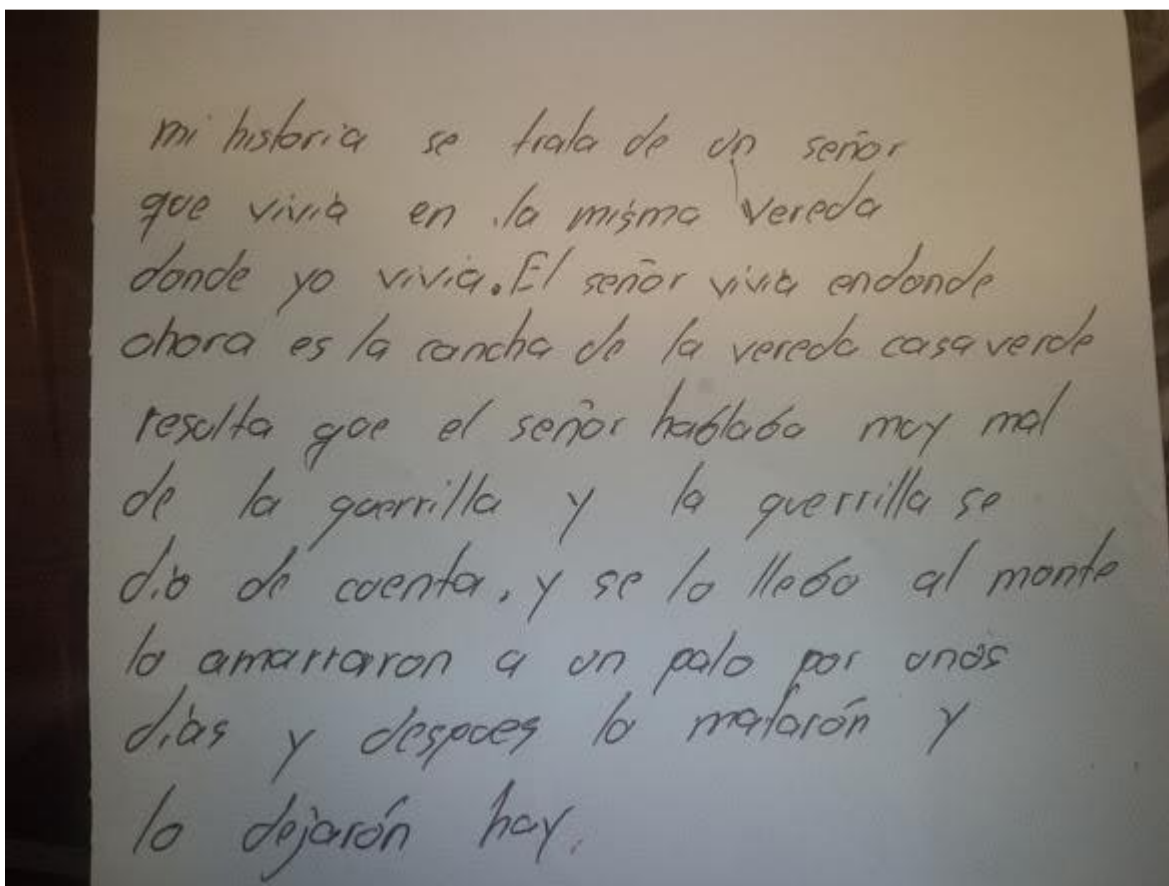 mi historia se trata de un señor
que vivia en la misma vereda
donde yo vivia. El señor vivia endonde
ahora es la cancha de la vereda casa verde
resulta que el señor hablaba muy mal
de la guerrilla y la guerrilla se
dio de cuenta, y se lo llebo al monte
lo amarraron a un palo por unos
días y despues lo matarón y
lo dejarón hay.